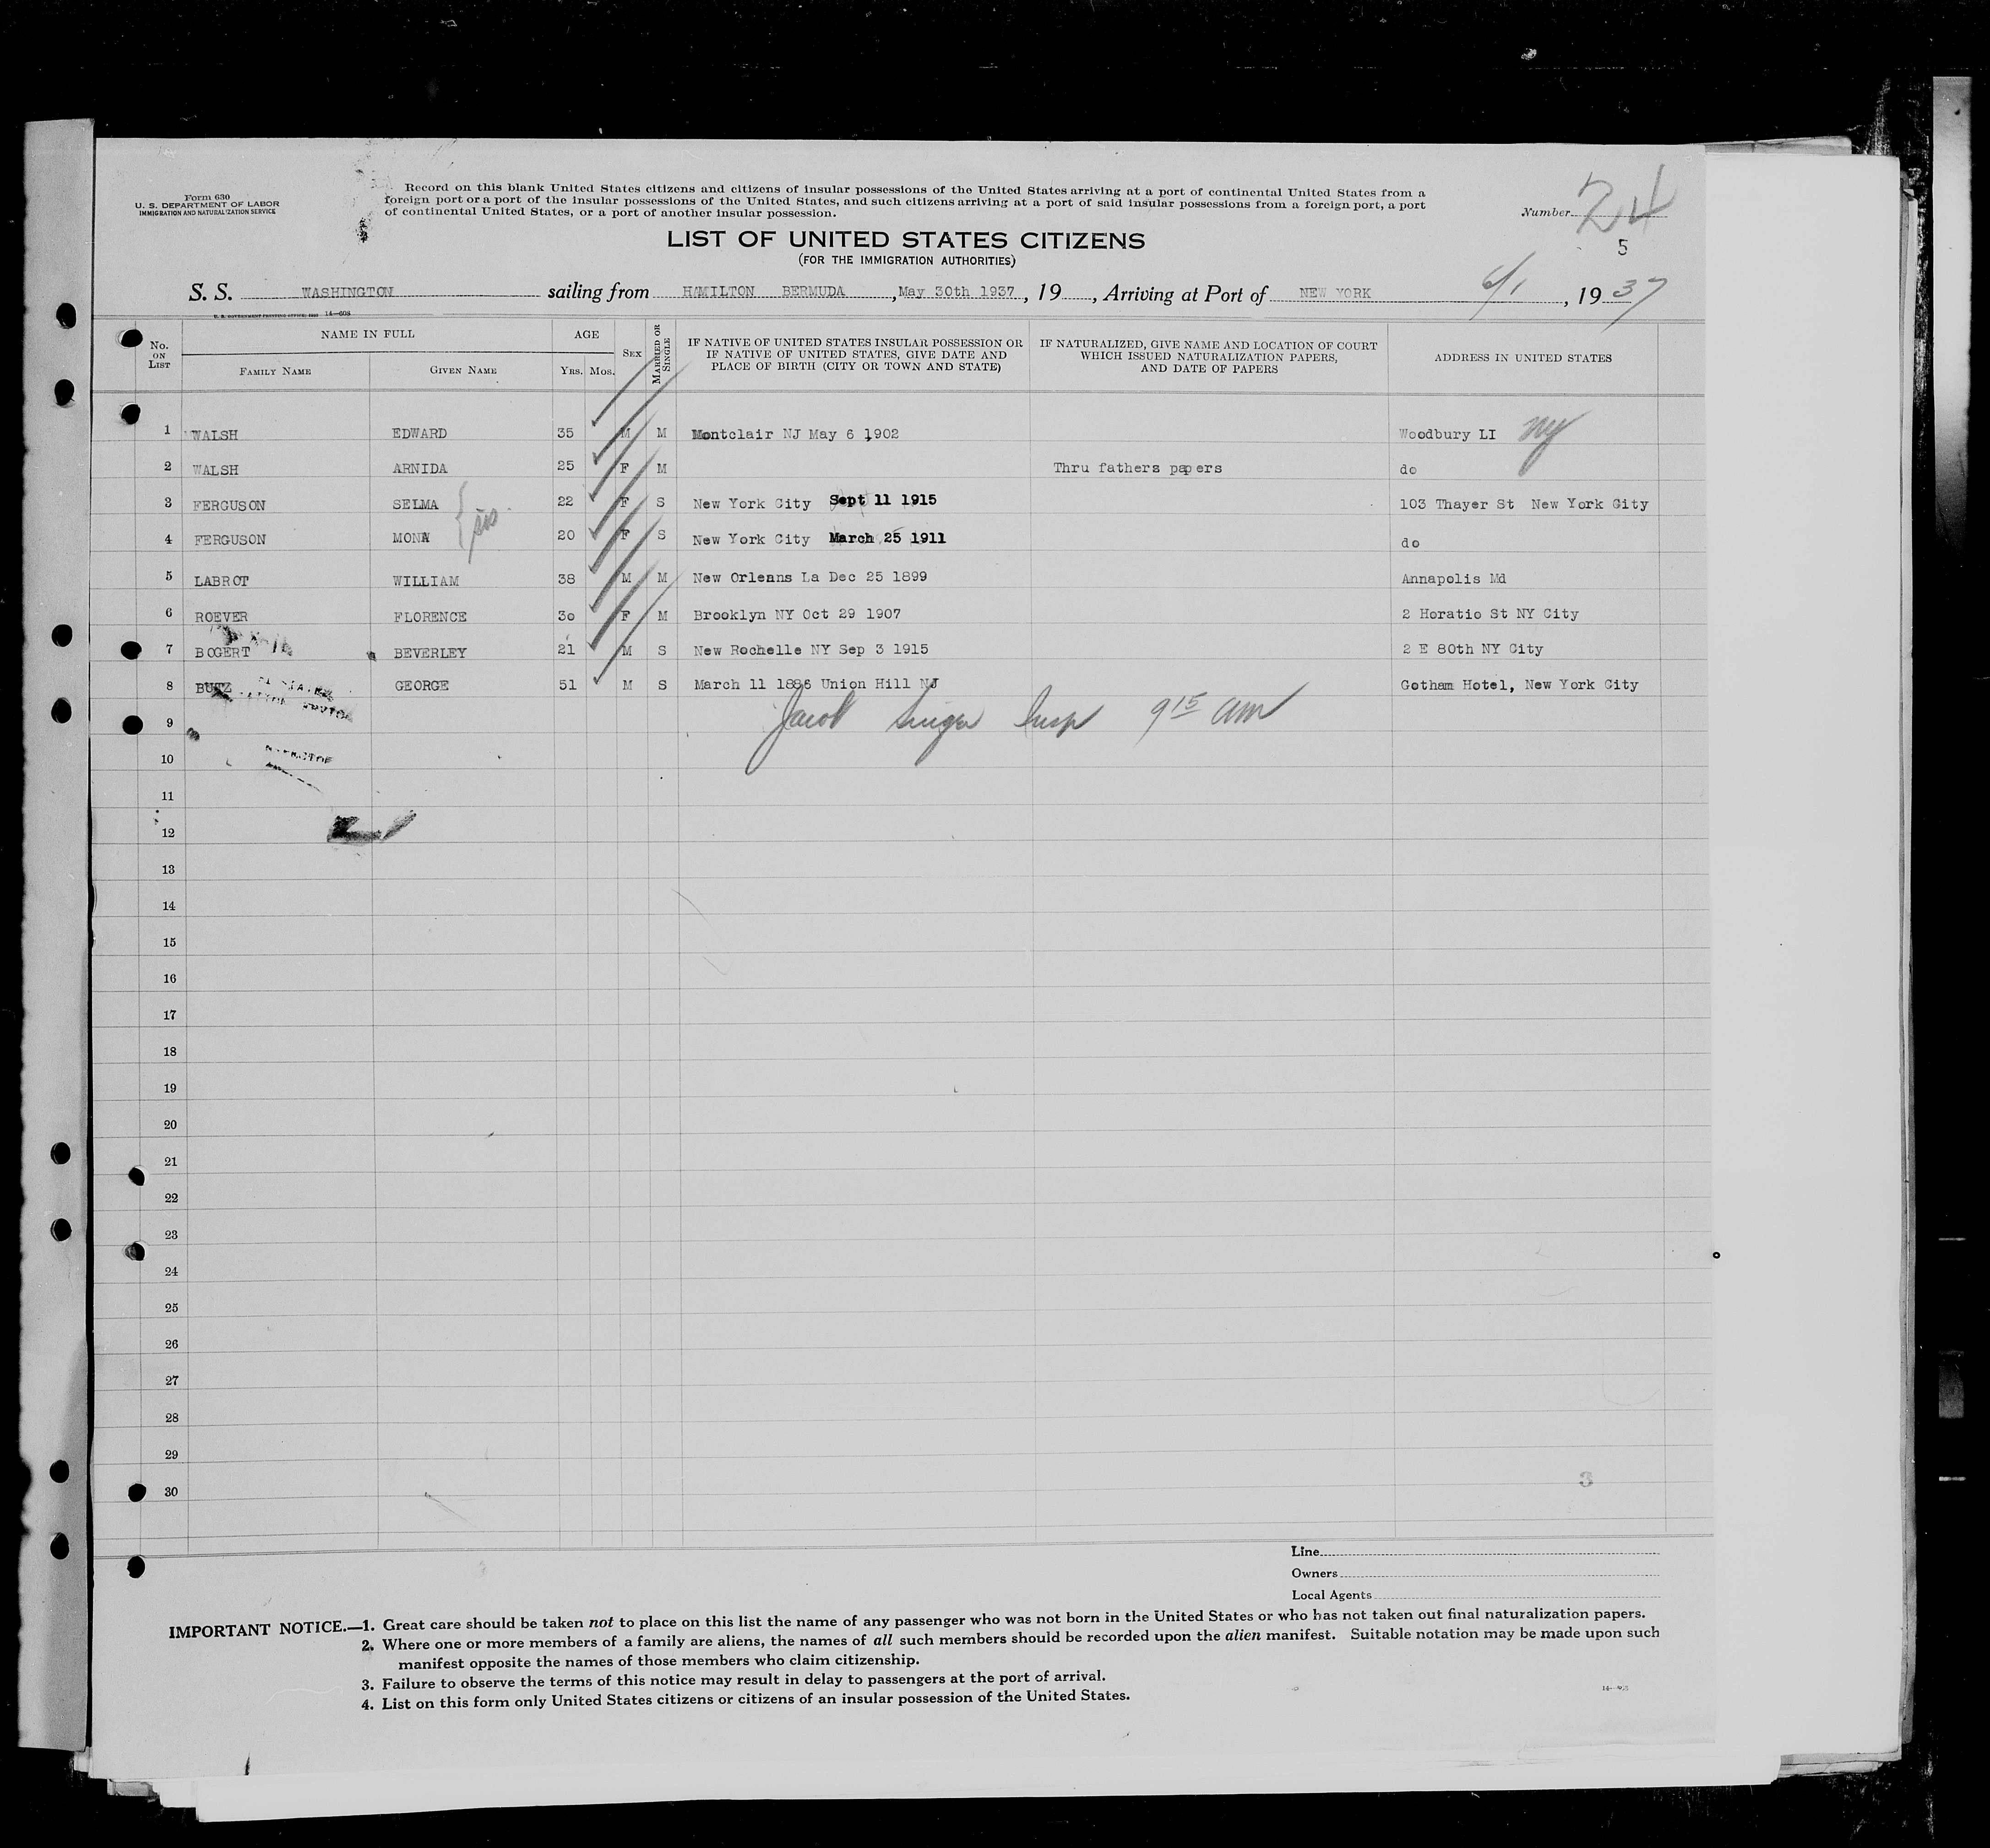 Form 630
U. S. DEPARTMENT OF LABOR
IMMIGRATION AND NATURALIZATION SERVICE
Record on this blank United States citizens and citizens of insular possessions of the United States arriving at a port of continental United States from a
foreign port or a port of the insular possessions of the United States, and such citizens arriving at a port of said insular possessions from a foreign port, a port
of continental United States, or a port of another insular possession.
Number 24
5
LIST OF UNITED STATES CITIZENS
(FOR THE IMMIGRATION AUTHORITIES)
S. S. WASHINGTON sailing from HAMILTON BERMUDA , May 30th 1937 , 19 , Arriving at Port of NEW YORK 6/1 , 19 37
U. S. GOVERNMENT PRINTING OFFICE: 14—608
No. ON LIST
NAME IN FULL
FAMILY NAME
GIVEN NAME
AGE
YRS. MOS.
SEX
MARRIED OR SINGLE
IF NATIVE OF UNITED STATES INSULAR POSSESSION OR
IF NATIVE OF UNITED STATES, GIVE DATE AND
PLACE OF BIRTH (CITY OR TOWN AND STATE)
IF NATURALIZED, GIVE NAME AND LOCATION OF COURT
WHICH ISSUED NATURALIZATION PAPERS,
AND DATE OF PAPERS
ADDRESS IN UNITED STATES
1 WALSH EDWARD 35 M M Montclair NJ May 6 1902 Woodbury LI NY
2 WALSH ARNIDA 25 F M Thru fathers papers do
3 FERGUSON SELMA 22 F S New York City Sept 11 1915 103 Thayer St New York City
sis
4 FERGUSON MONA 20 F S New York City March 25 1911 do
5 LABROT WILLIAM 38 M M New Orleans La Dec 25 1899 Annapolis Md
6 ROEVER FLORENCE 30 F M Brooklyn NY Oct 29 1907 2 Horatio St NY City
7 BOGERT BEVERLEY 21 M S New Rochelle NY Sep 3 1915 2 E 80th NY City
8 BUTZ GEORGE 51 M S March 11 1886 Union Hill NJ Gotham Hotel, New York City
9 Jacob Singer Insp 9 15 am
10
11
12
13
14
15
16
17
18
19
20
21
22
23
24
25
26
27
28
29
30
3
Line
Owners
Local Agents
IMPORTANT NOTICE.—1. Great care should be taken not to place on this list the name of any passenger who was not born in the United States or who has not taken out final naturalization papers.
2. Where one or more members of a family are aliens, the names of all such members should be recorded upon the alien manifest. Suitable notation may be made upon such
manifest opposite the names of those members who claim citizenship.
3. Failure to observe the terms of this notice may result in delay to passengers at the port of arrival.
4. List on this form only United States citizens or citizens of an insular possession of the United States.